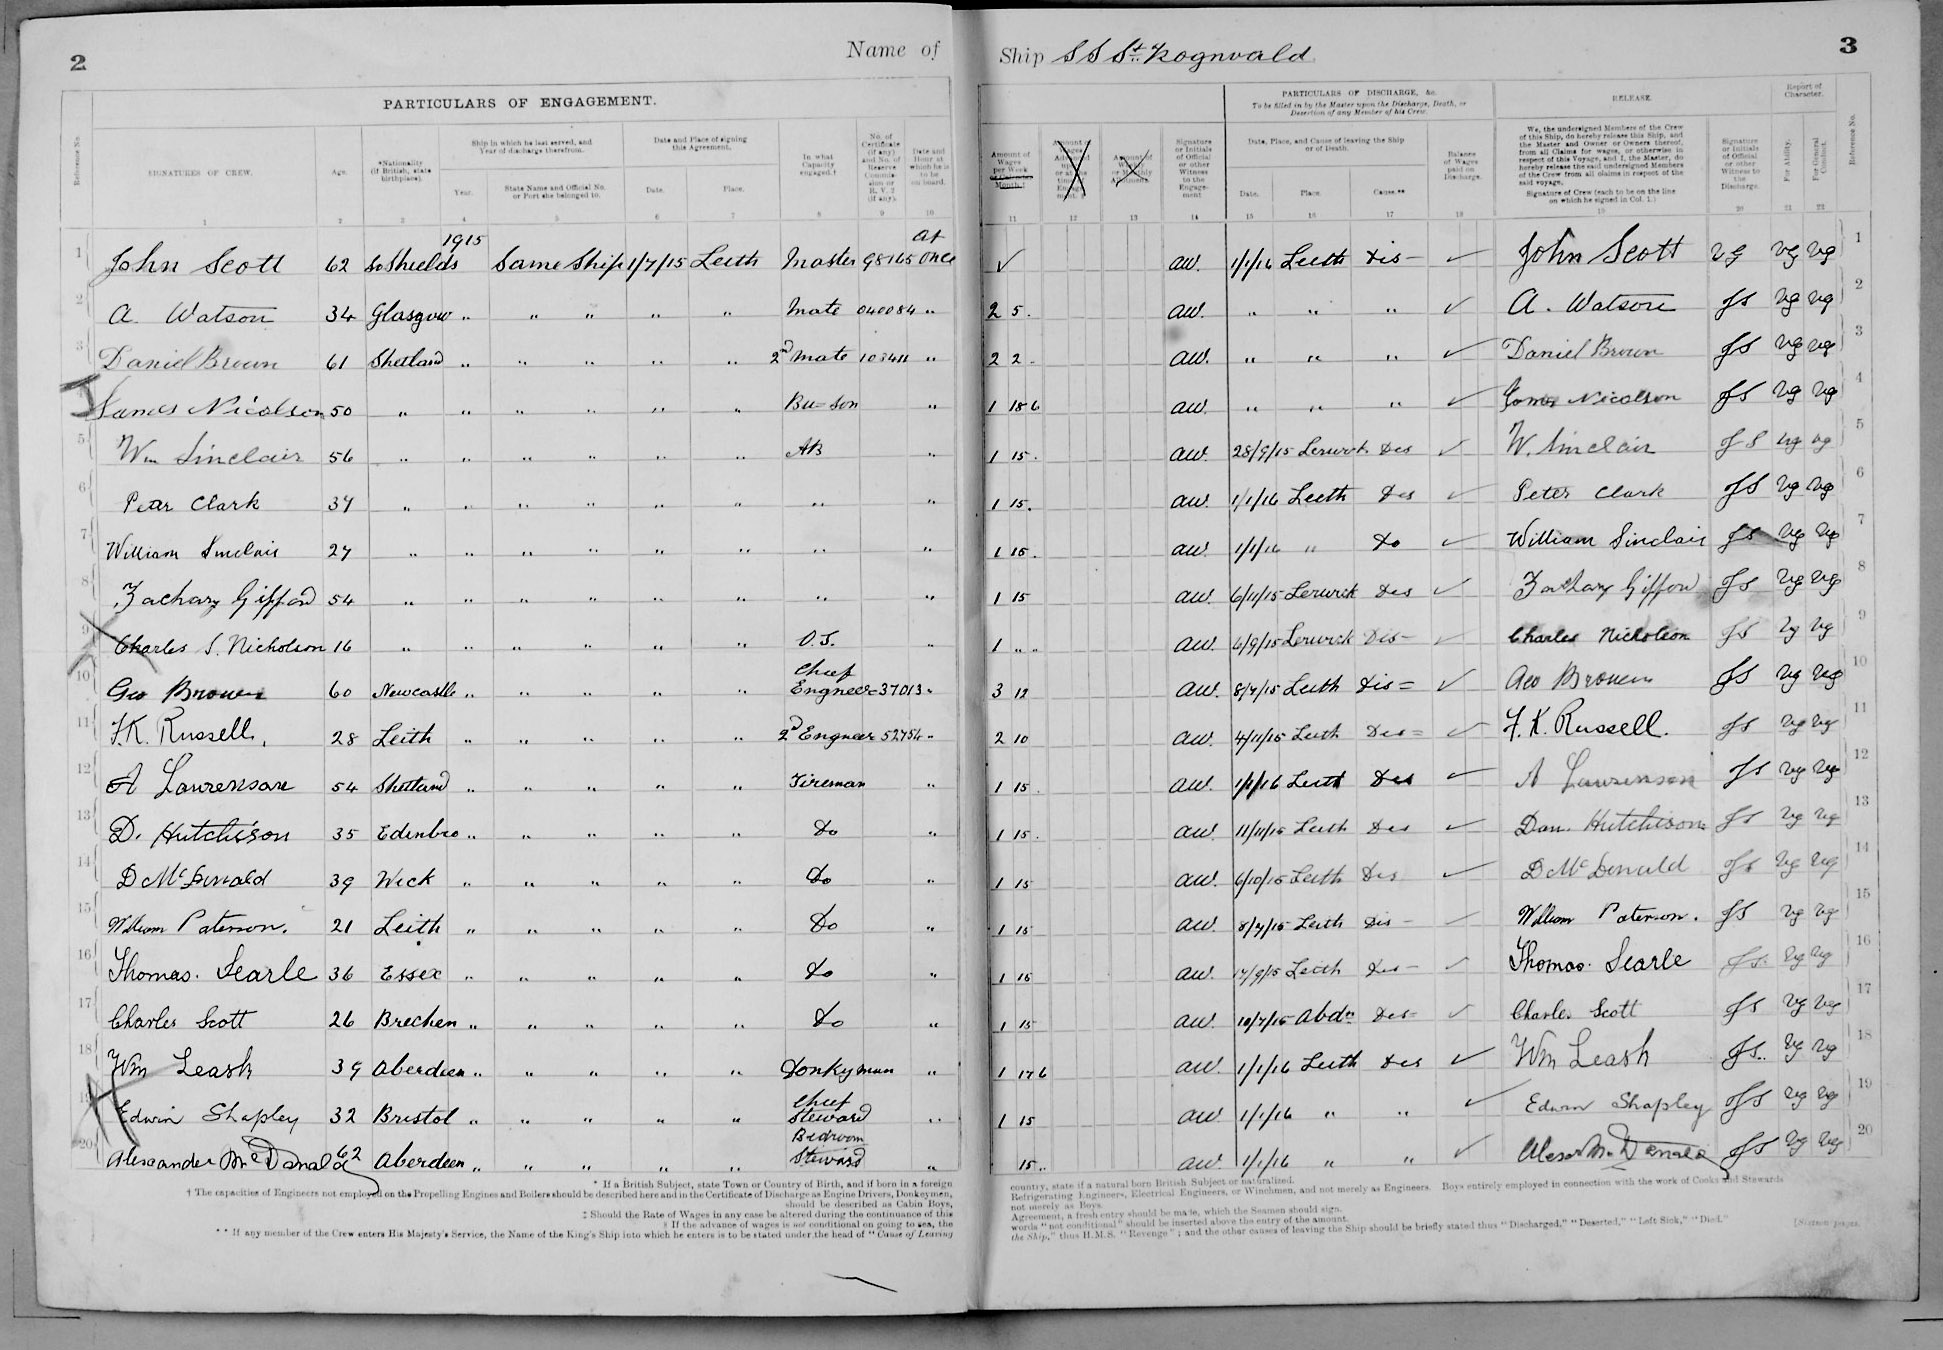 2
Name of
Ship S S St. Rognvald
3
PARTICULARS OF ENGAGEMENT.
PARTICULARS OF DISCHARGE, &c.
To be filled in by the Master upon the Discharge, Death, or
Desertion of any Member of his Crew.
RELEASE.
Report of
Character.
Reference No.
SIGNATURES OF CREW.
Age.
*Nationality
(if British, state
birthplace).
Ship in which he last served, and
Year of discharge therefrom.
Year.
State Name and Official No.
or Port she belonged to.
Date and Place of signing
this Agreement.
Date.
Place.
In what
Capacity
engaged.†
No. of
Certificate
(if any)
and No. of
Reserve
Commis-
sion or
R. V. 2
(if any).
Date and
Hour at
which he is
to be
on board.
Amount of
Wages
per Week
or Calendar
Month.‡
Amount of
Wages
Advanced
Amount of
Weekly
or Monthly
Allotment.
Signature
or Initials
of Official
or other
Witness
to the
Engage-
ment
Date, Place, and Cause of leaving the Ship
or of Death.
Date.
Place.
Cause.**
Balance
of Wages
paid on
Discharge.
We, the undersigned Members of the Crew
of this Ship, do hereby release this Ship, and
the Master and Owner or Owners thereof,
from all Claims for wages, or otherwise in
respect of this Voyage, and I, the Master, do
hereby release the said undersigned Members
of the Crew from all claims in respect of the
said voyage.
Signature of Crew (each to be on the line
on which he signed in Col. 1.)
Signature
or Initials
of Official
or other
Witness to
the
Discharge.
For Ability.
For General
Conduct.
Reference No.
1 2 3 4 5 6 7 8 9 10 11 12 13 14 15 16 17 18 19 20 21 22
1 John Scott 62 So Shields 1915 Same Ship 1/7/15 Leith Master 98165 At once ✓ aw. 1/1/16 Leith Dis – ✓ John Scott VG Vg Vg 1
2 A. Watson 34 Glasgow " " " " " Mate 040084 " 2 5 . aw. " " " ✓ A. Watson JS Vg Vg 2
3 Daniel Brown 61 Shetland " " " " " 2nd Mate " 2 2 . aw. " " " ✓ Daniel Brown JS Vg Vg 3
4 James Nicolson 50 " " " " " " " 1 18 6 aw. " " " ✓ James Nicolson JS Vg Vg 4
5 Wm Sinclair 56 " " " " " " AB " 1 15 . aw. 28/9/15 Lerwick Dis ✓ W. Sinclair JS Vg Vg 5
6 Peter Clark 37 " " " " " " " " 1 15 . aw. 1/1/16 Leith Dis ✓ Peter Clark JS Vg Vg 6
7 William Sinclair 27 " " " " " " " " 1 15 . aw. 1/1/16 " Do ✓ William Sinclair JS Vg Vg 7
8 Zachary Gifford 54 " " " " " " " " 1 15 aw. 6/11/15 Lerwick Dis ✓ Zachary Gifford JS Vg Vg 8
9 Charles S. Nicholson 16 " " " " " " O.S. " 1 " " aw. 6/9/15 Lerwick Dis – ✓ Charles Nicholson JS Vg Vg 9
10 Geo Brown 60 Newcastle " " " " " Chief Engneer 37013 " 3 12 aw. 8/7/15 Leith Dis = ✓ Geo Brown JS Vg Vg 10
11 F.K. Russell. 28 Leith " " " " " 2nd Engneer 52754 " 2 10 aw. 4/11/15 Leith Dis = ✓ F.K. Russell. JS Vg Vg 11
12 A Laurenson 54 Shetland " " " " " Fireman " 1 15 . aw. 1/1/16 Leith Dis ✓ A Laurenson JS Vg Vg 12
13 D. Hutchison 35 Edinbro " " " " " Do " 1 15 . aw. 11/11/15 Leith Dis ✓ Dan. Hutchison JS Vg Vg 13
14 D McDonald 39 Wick " " " " " Do " 1 15 aw. 6/10/15 Leith Dis ✓ D McDonald JS Vg Vg 14
15 William Paterson. 21 Leith " " " " " Do " 1 15 aw. 8/7/15 Leith Dis – ✓ William Paterson. JS Vg Vg 15
16 Thomas. Searle 36 Essex " " " " " Do " 1 15 aw. 17/9/15 Leith Dis – ✓ Thomas. Searle JS. Vg Vg 16
17 Charles Scott 26 Brechen " " " " " Do " 1 15 aw. 10/7/15 Abdn Dis – ✓ Charles Scott JS Vg Vg 17
18 Wm Leask 39 Aberdeen " " " " " Donkyman " 1 17 6 aw. 1/1/16 Leith Dis ✓ Wm Leask JS.. Vg Vg 18
19 Edwin Shapley 32 Bristol " " " " " Chief Steward " 1 15 aw 1/1/16 " " ✓ Edwin Shapley JS Vg Vg 19
20 Alexander McDonald 62 Aberdeen " " " " " Bedroom Steward " 15 .. aw. 1/1/16 " " ✓ McDonald JS Vg Vg 20
* If a British Subject, state Town or Country of Birth, and if born in a foreign
country, state if a natural born British Subject or naturalized.
† The capacities of Engineers not employed on the Propelling Engines and Boilers should be described here and in the Certificate of Discharge as Engine Drivers, Donkeymen,
Refrigerating Engineers, Electrical Engineers, or Winchmen, and not merely as Engineers. Boys entirely employed in connection with the work of Cooks and Stewards
should be described as Cabin Boys,
not merely as Boys.
‡ Should the Rate of Wages in any case be altered during the continuance of this
Agreement, a fresh entry should be made, which the Seamen should sign.
§ If the advance of wages is not conditional on going to sea, the
words "not conditional" should be inserted above the entry of the amount.
** If any member of the Crew enters His Majesty's Service, the Name of the King's Ship into which he enters is to be stated under the head of "Cause of Leaving
the Ship," thus H.M.S. "Revenge"; and the other causes of leaving the Ship should be briefly stated thus "Discharged," "Deserted," "Left Sick," "Died."
[Sixteen pages.